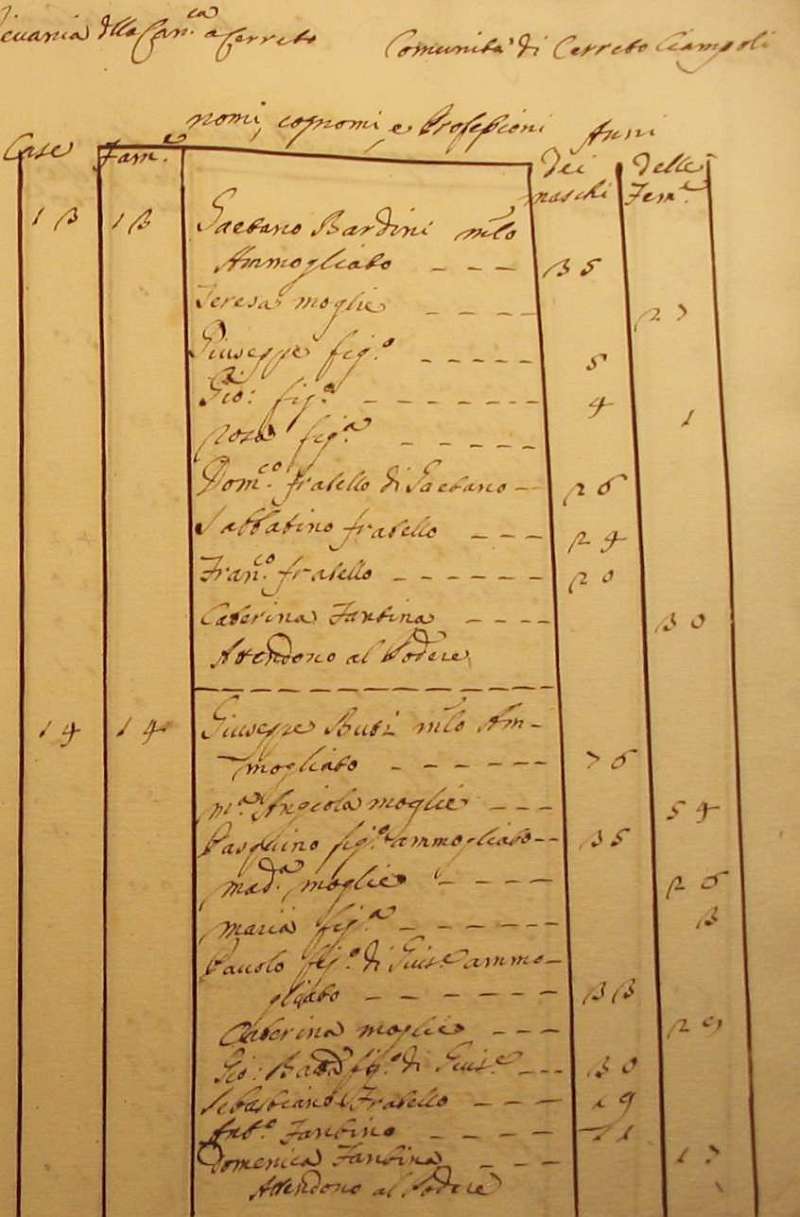 della Can.ca a Cerreto Comunità di Cerreto Ciampoli
nomi, cognomi, e Professioni Anni
Case Fam.e dei maschi delle Fem.e
13 13 Gaetano Bardini
Ammogliato --- 35
Teresa moglie ---- 27
Giuseppe fig.o ----- 5
Gio: fig.o ------- 4
rosa fig.a ----- 1
Dom.co fratello di Gaetano - 26
Sabbatino fratello --- 24
Fran.co fratello ------ 20
Caterina Fantina ---- 30
Attendono al Podere
14 14 Giuseppe Buti Am-
mogliato ------ 76
m.a Angiola moglie --- 54
Pasquino fig.o ammogliato -- 35
mad.a moglie ---- 26
maria fig.a ------ 3
Pauolo fig.o di Gius.e ammo-
gliato ------ 33
Caterina moglie --- 29
Gio: Batta fig.o di Gius.e --- 30
Sebastiano Fratello --- 19
Ant.o Fantino ---- 11
Domenica Fantina --- 17
Attendono al Podere